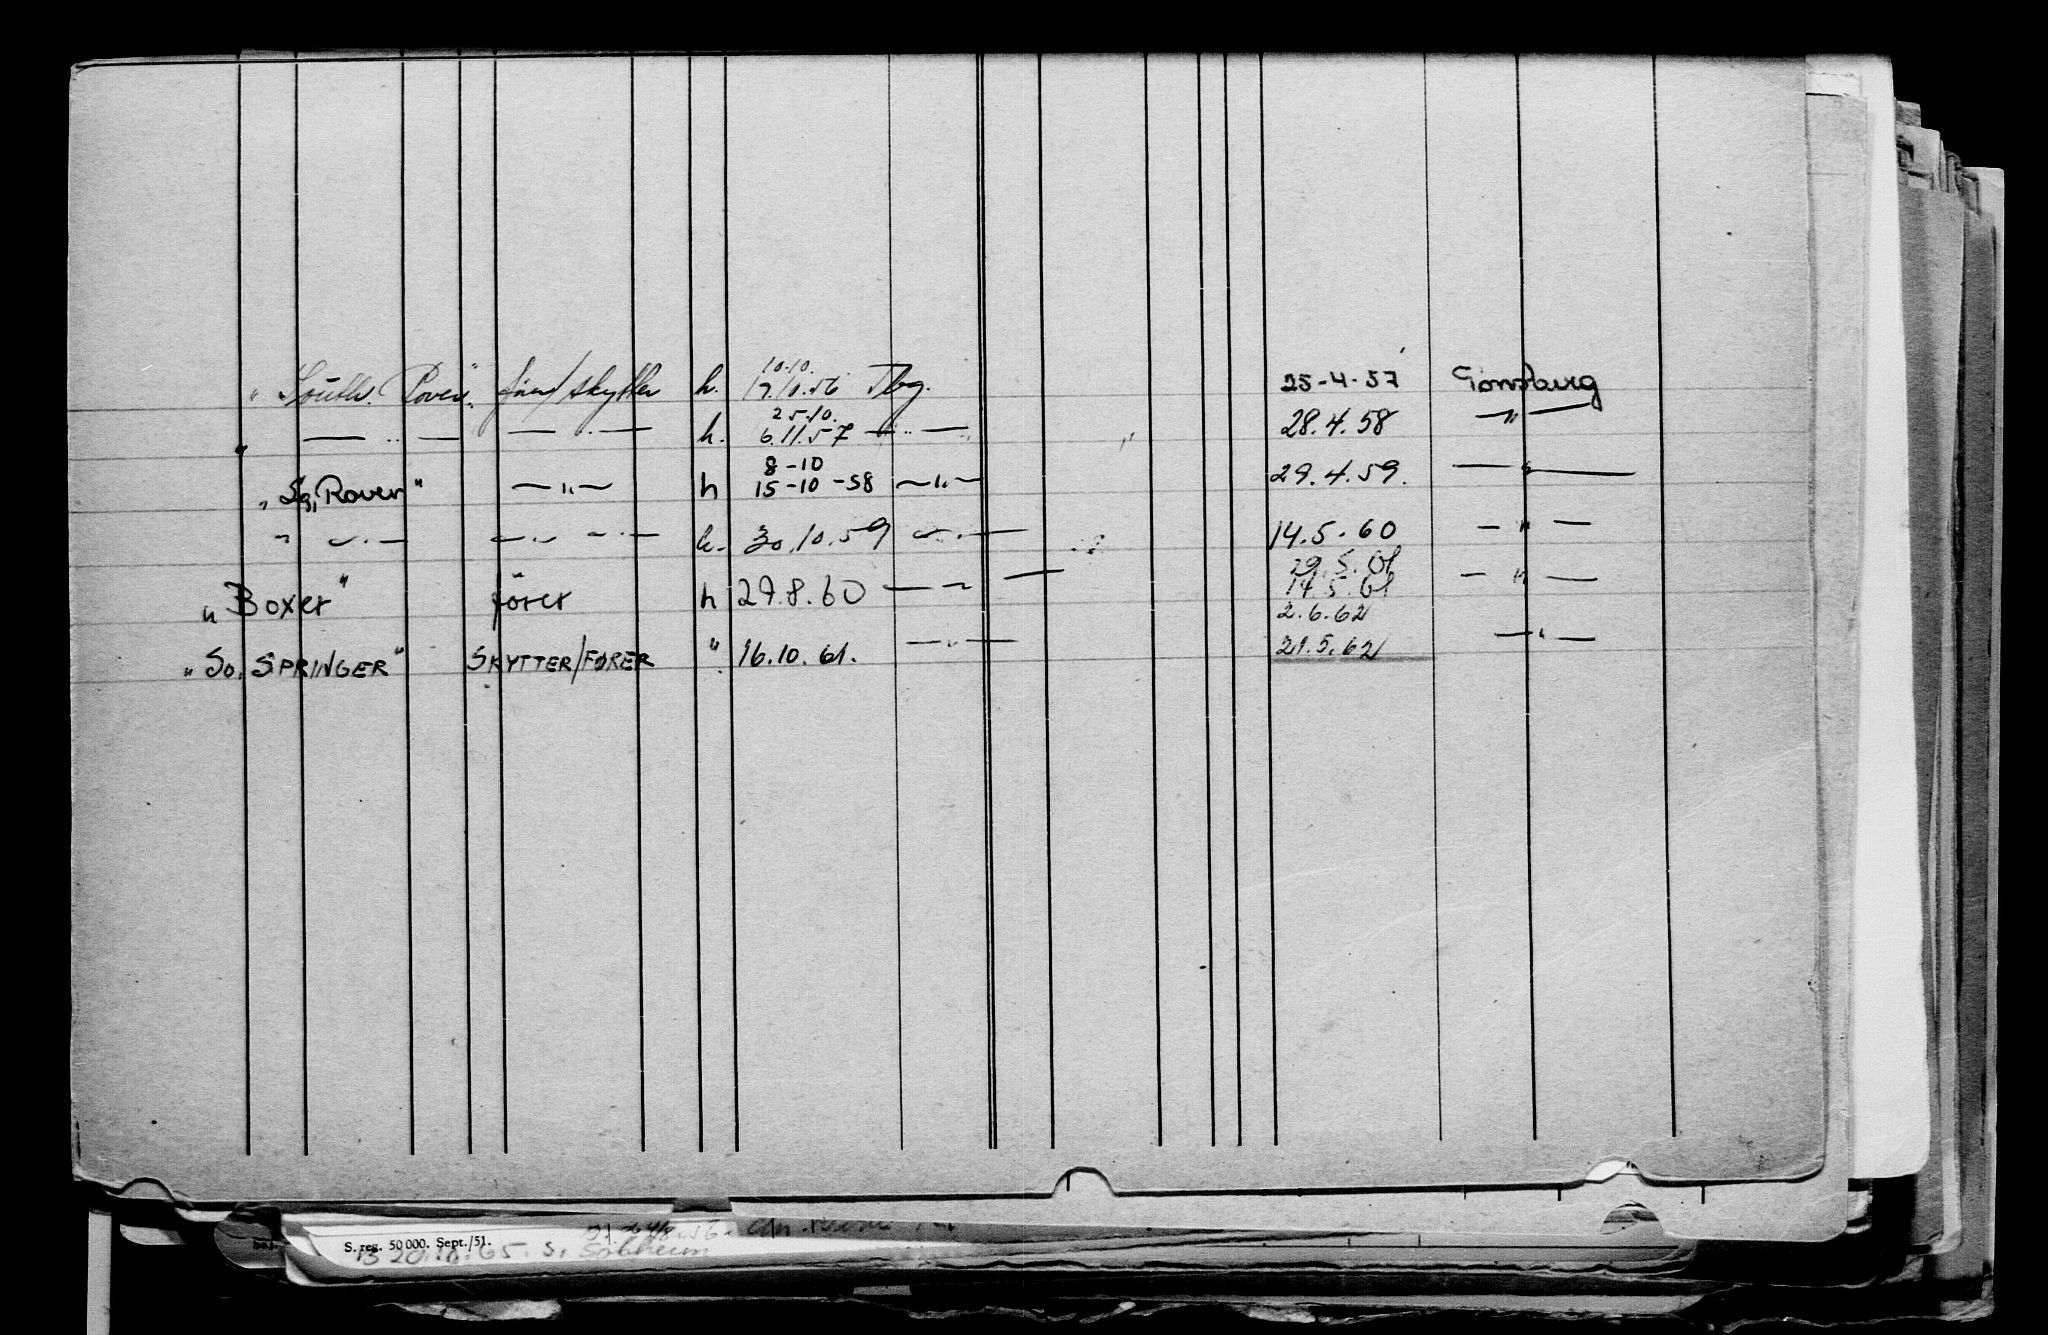 10.10.
„South. Rover" fører/skytter h. 17.10.56 Tbg. 25-4-57 Tønsberg
25.10.
„ — „ — — „ — h. 6.11.57 — „ — 28.4.58 — „ —
8-10
„So, Rover" — „ — h 15-10-58 — „ — 29.4.59. — „ —
„ — „ — — „ — „ — h. 30.10.59 — „ — 14.5.60 — „ —
29.5.61
„Boxer" fører h 29.8.60 — „ — 14.5.61 — „ —
2.6.62
„So. SPRINGER" SKYTTER/FØRER " 16.10.61. — „ — 21.5.62 — „ —
S. reg. 50 000. Sept./51.